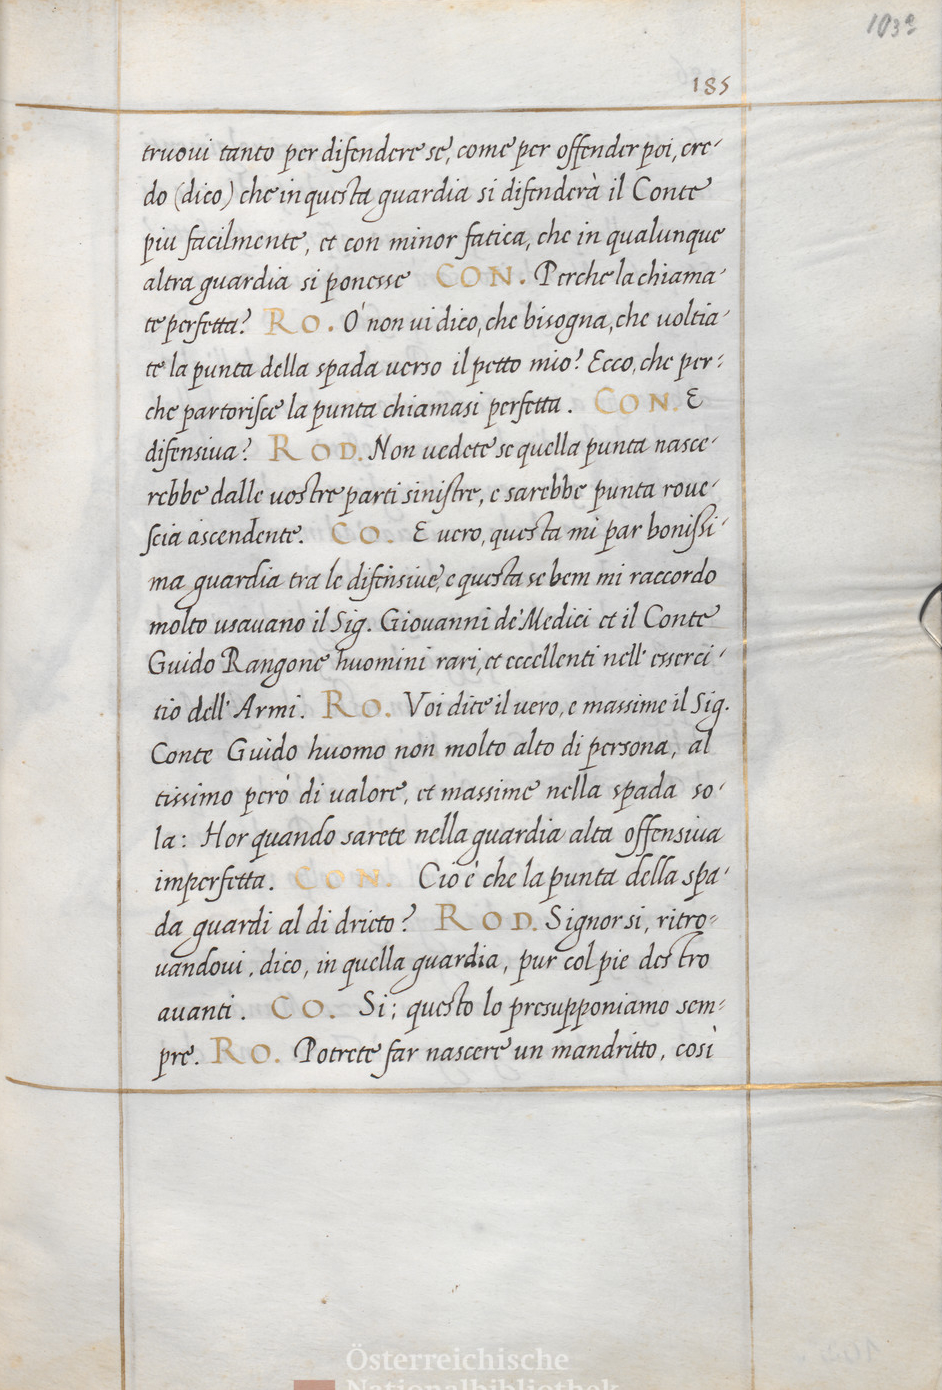 103
185
truoui tanto per difendere se, come per offender poi, cre-
do (dico) che in questa guardia si difenderà il Conte
piu facilmente, et con minor fatica, che in qualunque
altra guardia si ponesse CON. Perche la chiama-
te perfetta? RO. O' non ui dico, che bisogna, che uoltia-
te la punta della spada uerso il petto mio? Ecco, che per-
che partorisce la punta chiamasi perfetta. CON. E
difensiua? ROD. Non uedete se quella punta nasce-
rebbe dalle uostre parti sinistre, e sarebbe punta roue-
scia ascendente. CO. E uero, questa mi par bonissi-
ma guardia tra le difensiue, e questa se bem mi raccordo
molto usauano il Sig. Giouanni de' Medici et il Conte
Guido Rangone huomini rari, et eccellenti nell' esserci-
tio dell' Armi. RO. Voi dite il uero, e massime il Sig.
Conte Guido huomo non molto alto di persona, al
tissimo però di ualore, et massime nella spada so-
la: Hor quando sarete nella guardia alta offensiua
imperfetta. CON. Cio è che la punta della spa-
da guardi al di dritto? ROD. Signor si, ritro-
uandoui, dico, in quella guardia, pur col pie destro
auanti. CO. Si; questo lo presupponiamo sem-
pre. RO. Potrete far nascere un mandritto, così
Österreichische
Nationalbibliothek